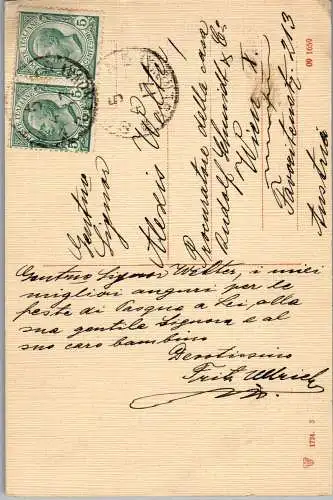 Gentmo
Signor
Alexis Welter
Procuratore della casa
Rudolf Schmidt & Co
Wien X.
Favoritenstr. 213
Austria
Gentmo Signor Welter, i miei
migliori auguri per le
feste di Pasqua a Lei, alla
sua gentile Signora e al
suo caro bambino
Devotissimo
Fritz Ullrich
09 1050
1724 3